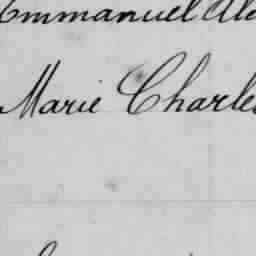 Emmanuel Al
Marie Charles